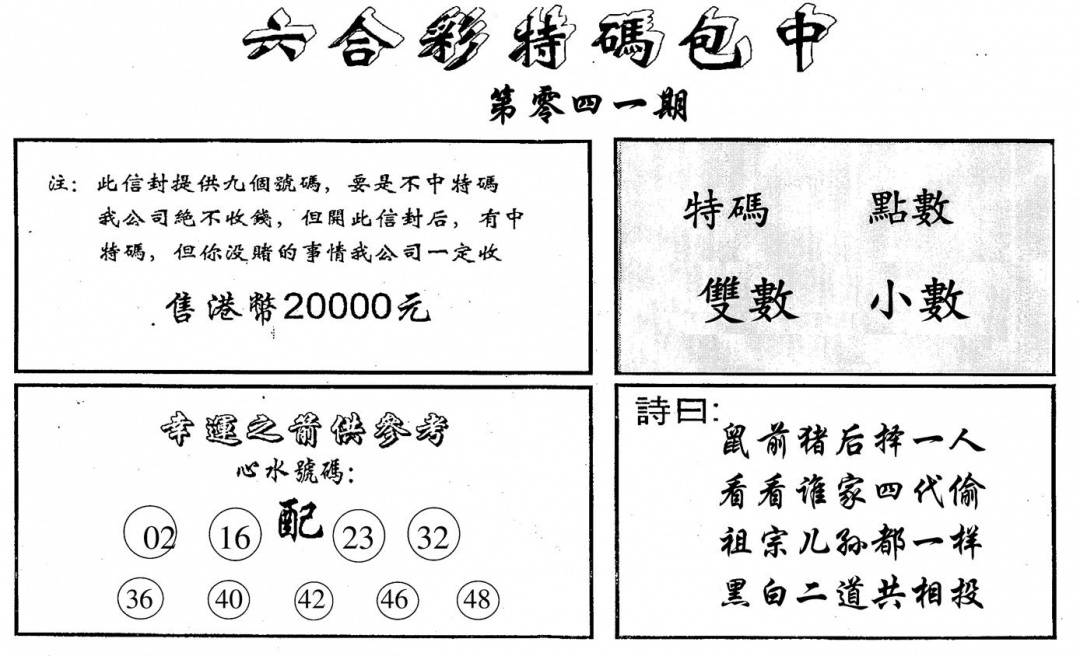 六合彩特碼包中
第零四一期
注：此信封提供九個號碼，要是不中特碼
我公司絕不收錢，但開此信封后，有中
特碼，但你没賭的事情我公司一定收
售港幣20000元
特碼 點數
雙數 小數
幸運之箭供參考
心水號碼：
配
02 16 23 32
36 40 42 46 48
詩曰：
鼠前猪后择一人
看看谁家四代偷
祖宗儿孙都一样
黑白二道共相投